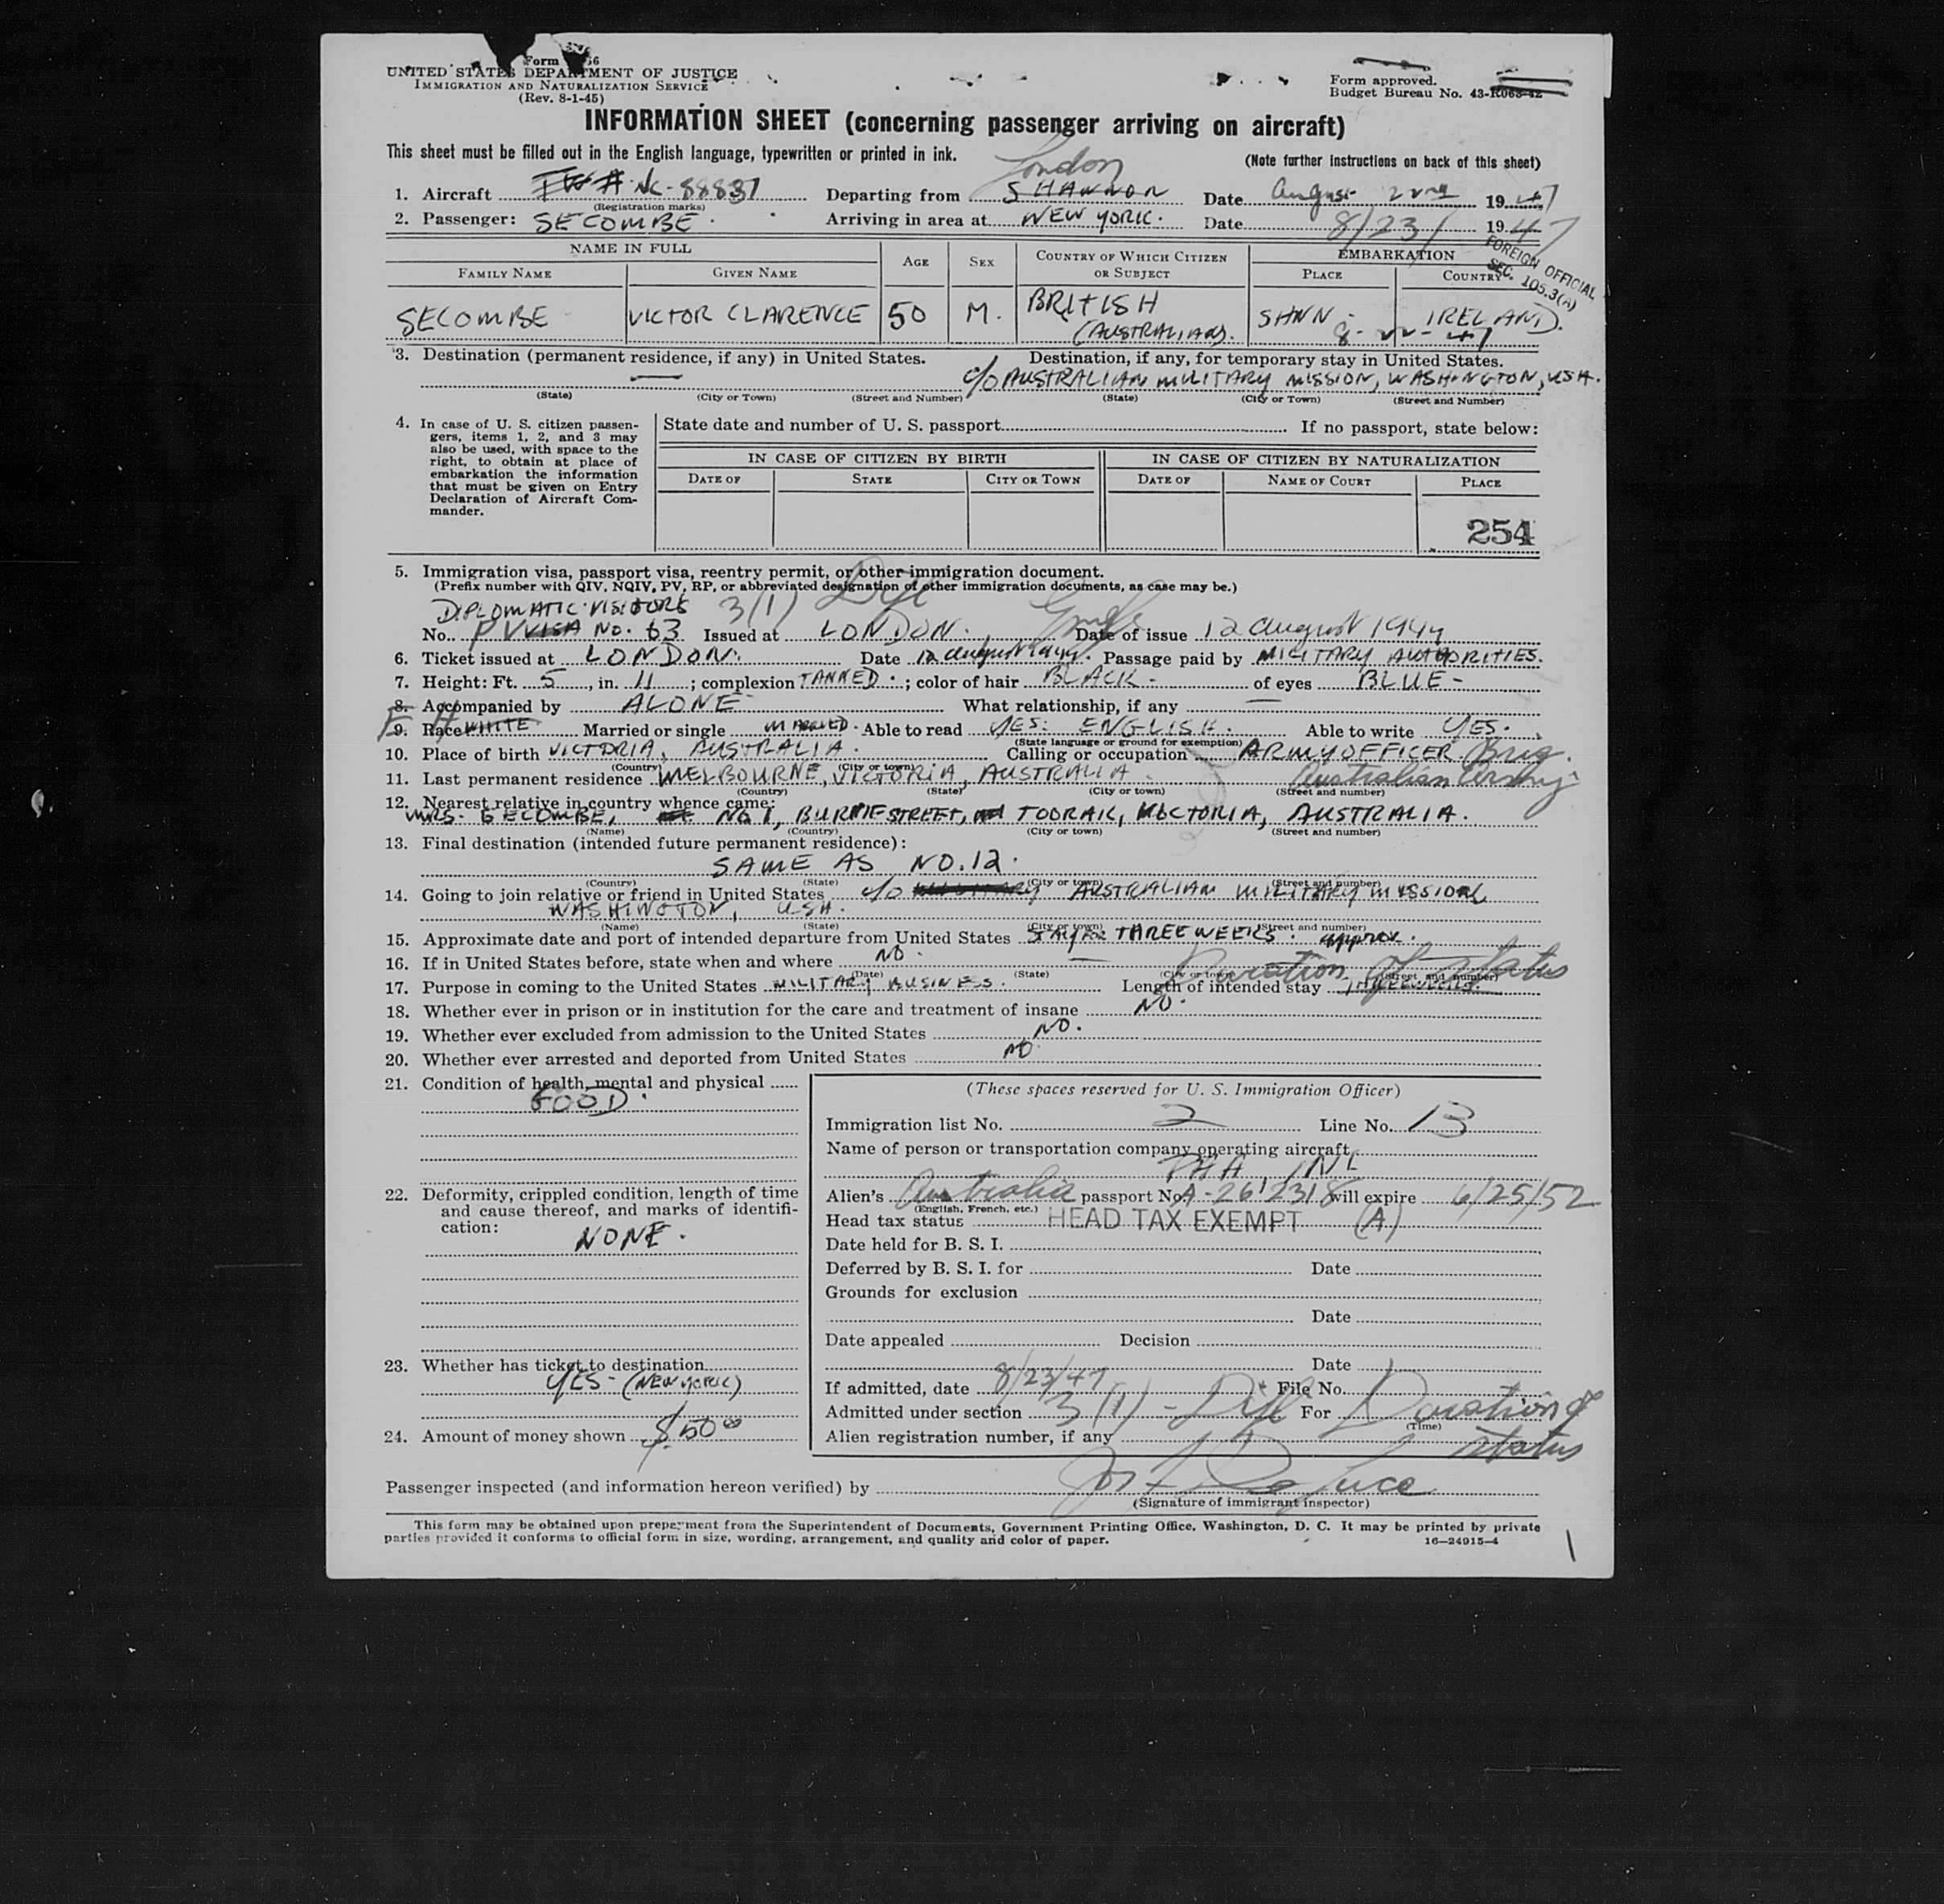 Form
UNITED STATES DEPARTMENT OF JUSTICE
IMMIGRATION AND NATURALIZATION SERVICE
(Rev. 8-1-45)
Form approved.
Budget Bureau No. 43-R063-42
INFORMATION SHEET (concerning passenger arriving on aircraft)
This sheet must be filled out in the English language, typewritten or printed in ink.
(Note further instructions on back of this sheet)
London
1. Aircraft TWA NC-88837 Departing from SHANNON Date August 22nd 1947
(Registration marks)
2. Passenger: SECOMBE. Arriving in area at NEW YORK. Date 8/23/ 1947
FOREIGN OFFICIAL
SEC. 105.3(A)
NAME IN FULL AGE SEX COUNTRY OF WHICH CITIZEN OR SUBJECT EMBARKATION
FAMILY NAME GIVEN NAME PLACE COUNTRY
SECOMBE VICTOR CLARENCE 50 M. BRITISH (AUSTRALIAN). SHNN - IRELAND.
8-22-47
3. Destination (permanent residence, if any) in United States. Destination, if any, for temporary stay in United States.
— c/o AUSTRALIAN MILITARY MISSION, WASHINGTON, USA.
(State) (City or Town) (Street and Number) (State) (City or Town) (Street and Number)
4. In case of U. S. citizen passen-
gers, items 1, 2, and 3 may
also be used, with space to the
right, to obtain at place of
embarkation the information
that must be given on Entry
Declaration of Aircraft Com-
mander.
State date and number of U. S. passport If no passport, state below:
IN CASE OF CITIZEN BY BIRTH IN CASE OF CITIZEN BY NATURALIZATION
DATE OF STATE CITY OR TOWN DATE OF NAME OF COURT PLACE
254
5. Immigration visa, passport visa, reentry permit, or other immigration document.
(Prefix number with QIV, NQIV, PV, RP, or abbreviated designation of other immigration documents, as case may be.)
DIPLOMATIC VISITORS 3(1) Dipl
No. PV VISA NO. 63 Issued at LONDON. Date of issue 12 August 1947
6. Ticket issued at LONDON. Date 12 August 1947. Passage paid by MILITARY AUTHORITIES.
7. Height: Ft. 5, in. 11; complexion TANNED.; color of hair BLACK - of eyes BLUE -
8. Accompanied by ALONE What relationship, if any —
9. Race WHITE Married or single MARRIED. Able to read YES: ENGLISH. Able to write YES.
(State language or ground for exemption)
10. Place of birth VICTORIA, AUSTRALIA. Calling or occupation ARMY OFFICER Brig.
(Country) (City or town)
Australian Army
11. Last permanent residence MELBOURNE, VICTORIA, AUSTRALIA
(Country) (State) (City or town) (Street and number)
12. Nearest relative in country whence came:
MRS. SECOMBE, NO 1, STREET, TOORAK, VICTORIA, AUSTRALIA.
(Name) (Country) (City or town) (Street and number)
13. Final destination (intended future permanent residence):
SAME AS NO. 12.
(Country) (State) (City or town) (Street and number)
14. Going to join relative or friend in United States c/o MILITARY AUSTRALIAN MILITARY MISSION
WASHINGTON, USA.
(Name) (State) (City or town) (Street and number)
15. Approximate date and port of intended departure from United States STAY FOR THREE WEEKS. approx.
16. If in United States before, state when and where NO. —
(Date) (State) (City or town) (Street and number)
Duration of status
17. Purpose in coming to the United States MILITARY BUSINESS. Length of intended stay THREE WEEKS.
18. Whether ever in prison or in institution for the care and treatment of insane NO.
19. Whether ever excluded from admission to the United States NO.
20. Whether ever arrested and deported from United States NO
21. Condition of health, mental and physical
GOOD.
22. Deformity, crippled condition, length of time
and cause thereof, and marks of identifi-
cation:
NONE.
23. Whether has ticket to destination
YES - (NEW YORK)
24. Amount of money shown $50 00
(These spaces reserved for U. S. Immigration Officer)
Immigration list No. 2 Line No. 13
Name of person or transportation company operating aircraft
PAA INC
Alien's Australia passport No. A-2612318 will expire 6/25/52
(English, French, etc.)
Head tax status HEAD TAX EXEMPT (A)
Date held for B. S. I.
Deferred by B. S. I. for Date
Grounds for exclusion
Date
Date appealed Decision
Date
If admitted, date 8/23/47 File No.
Admitted under section 3(1) - Dipl For Duration of
(Time)
Alien registration number, if any status
Passenger inspected (and information hereon verified) by
(Signature of immigrant inspector)
This form may be obtained upon prepayment from the Superintendent of Documents, Government Printing Office, Washington, D. C. It may be printed by private
parties provided it conforms to official form in size, wording, arrangement, and quality and color of paper. 16—24915-4